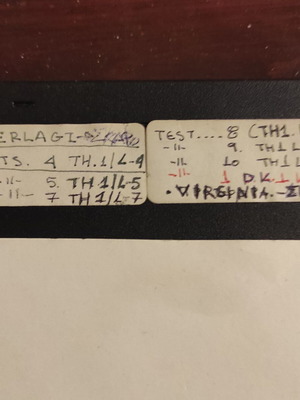 ERLAGI-
TS. 4 TH.1/L-4
-11- 5. TH 1/L-5
-11- 7 TH 1/L-7
TEST.... 8 (TH1.
-11- 9. TH1 L
-11- 10 TH1 L
-11- 1 D.K.1
• VIRGINIA.-